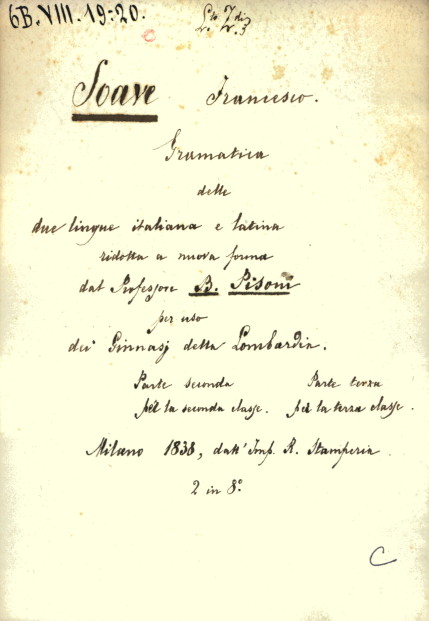 6B.VIII.19-20.
Soave Francesco.
Gramatica
delle
due lingue italiana e latina
ridotta a nuova forma
dal Professore B. Pisoni
per uso
dei Ginnasj della Lombardia.
Parte seconda Parte terza
per la seconda classe. per la terza classe.
Milano 1838, dall' Imp. R. Stamperia.
2 in 8.°
C